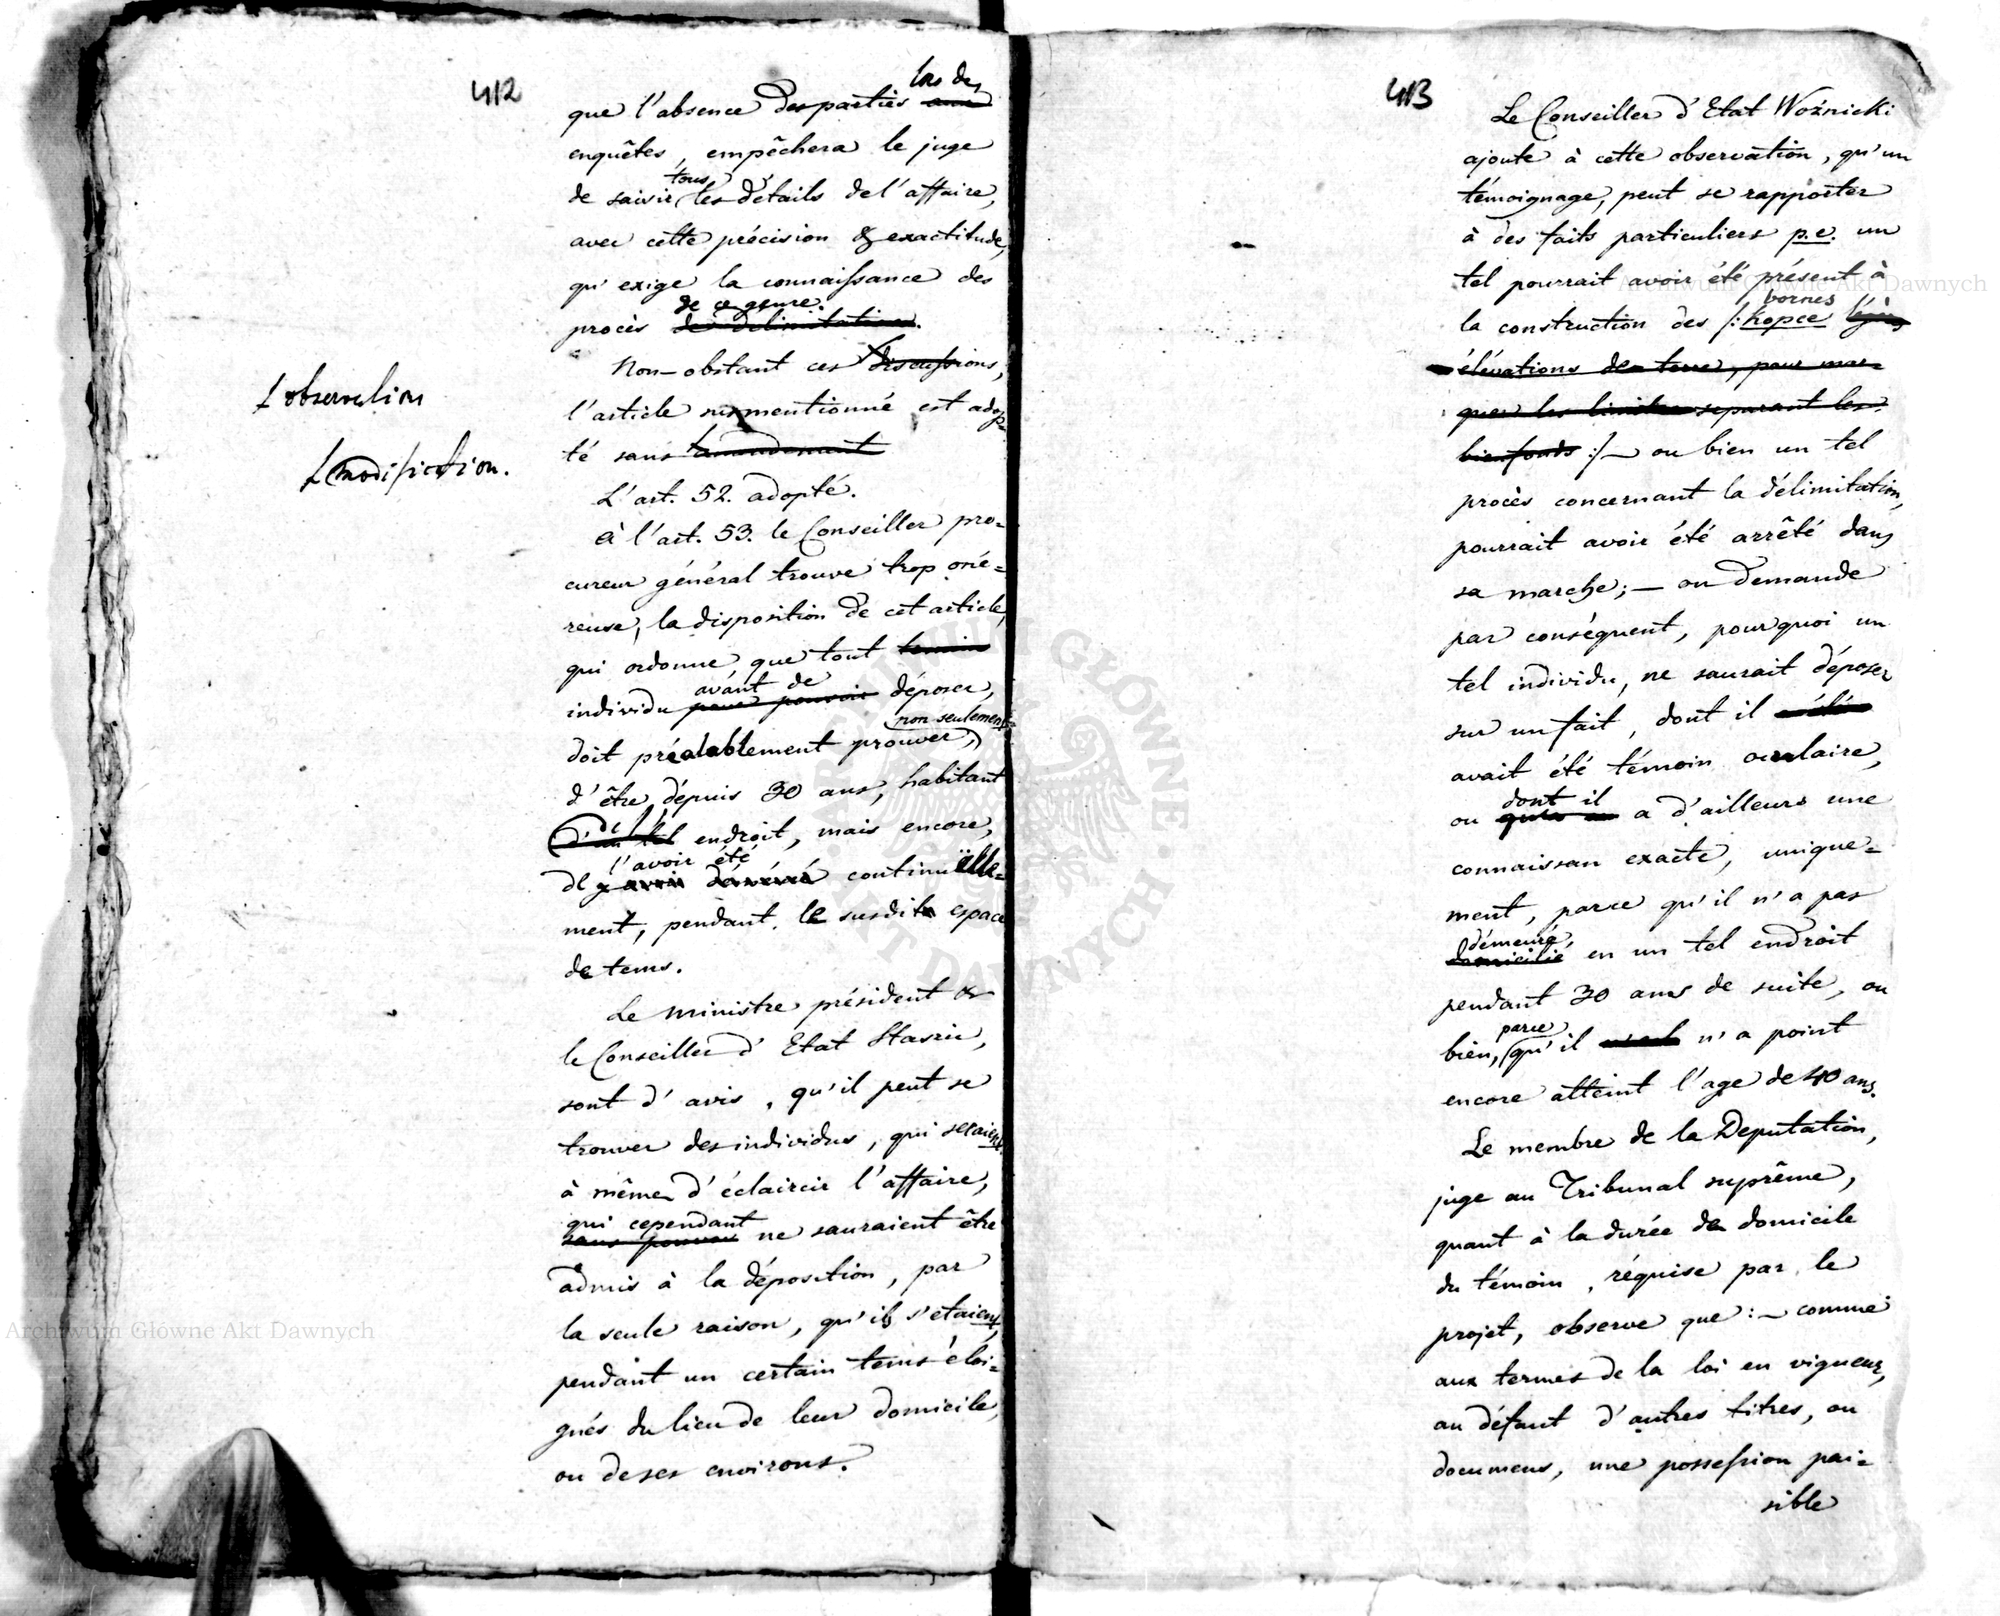 412
lors des
que l'absence des parties aux
enquêtes, empêchera le juge
tous
de saisir les détails de l'affaire,
avec cette précision & exactitude,
qu'exige la connaissance des
de ce genre.
procès des délimitations.
Non-obstant ces discussions,
observation
l'article susmentionné est adop-
té sans amendement
modification.
L'art. 52. adopté.
à l'art. 53. le Conseiller pro-
cureur général trouve trop oné-
reuse, la disposition de cet article,
qui ordonne, que tout témoin
avant de
individu pour pouvoir déposer,
non seulement
doit préalablement prouver,
d'être dépuis 30 ans, habitant
de l'
d'un tel endroit, mais encore,
l'avoir été
de continuëlle-
ment, pendant le susdit espace
de tems.
Le ministre président &
le Conseiller d'Etat Staszic,
sont d'avis, qu'il peut se
trouver des individus, qui seraient
à même d'éclaircir l'affaire,
qui cependant
sans pouvoir ne sauraient être
admis à la déposition, par
la seule raison, qu'ils s'etaient,
pendant un certain tems éloi-
gnés du lieu de leur domicile,
ou de ses environs.
413
Le Conseiller d'Etat Woźnicki
ajoute à cette observation, qu'un
témoignage, peut se rapporter
à des faits particuliers p.e. un
tel pourrait avoir été présent à
bornes
la construction des /: kopce
élévations de terre, pour mar-
quer les limites separant les
bienfonds :/ — ou bien un tel
procès concernant la délimitation,
pourrait avoir été arrêté dans
sa marche; — on demande
par conséquent, pourquoi un
tel individu, ne saurait déposer
sur un fait, dont il a été
avait été témoin oculaire,
dont il
ou a d'ailleurs une
connaissan exacte, unique-
ment, parce qu'il n'a pas
démeuré
domicilié en un tel endroit
pendant 30 ans de suite, ou
parce
bien, qu'il n'a point
encore atteint l'age de 40 ans.
Le membre de la Deputation,
juge au Tribunal suprême,
quant à la durée de domicile
du témoin, réquise par le
projet, observe que :— comme
aux termes de la loi en vigueur,
au défaut d'autres titres, ou
documens, une possession pai-
sible
Archiwum Główne Akt Dawnych
Archiwum Główne Akt Dawnych
ARCHIWUM GŁÓWNE AKT DAWNYCH